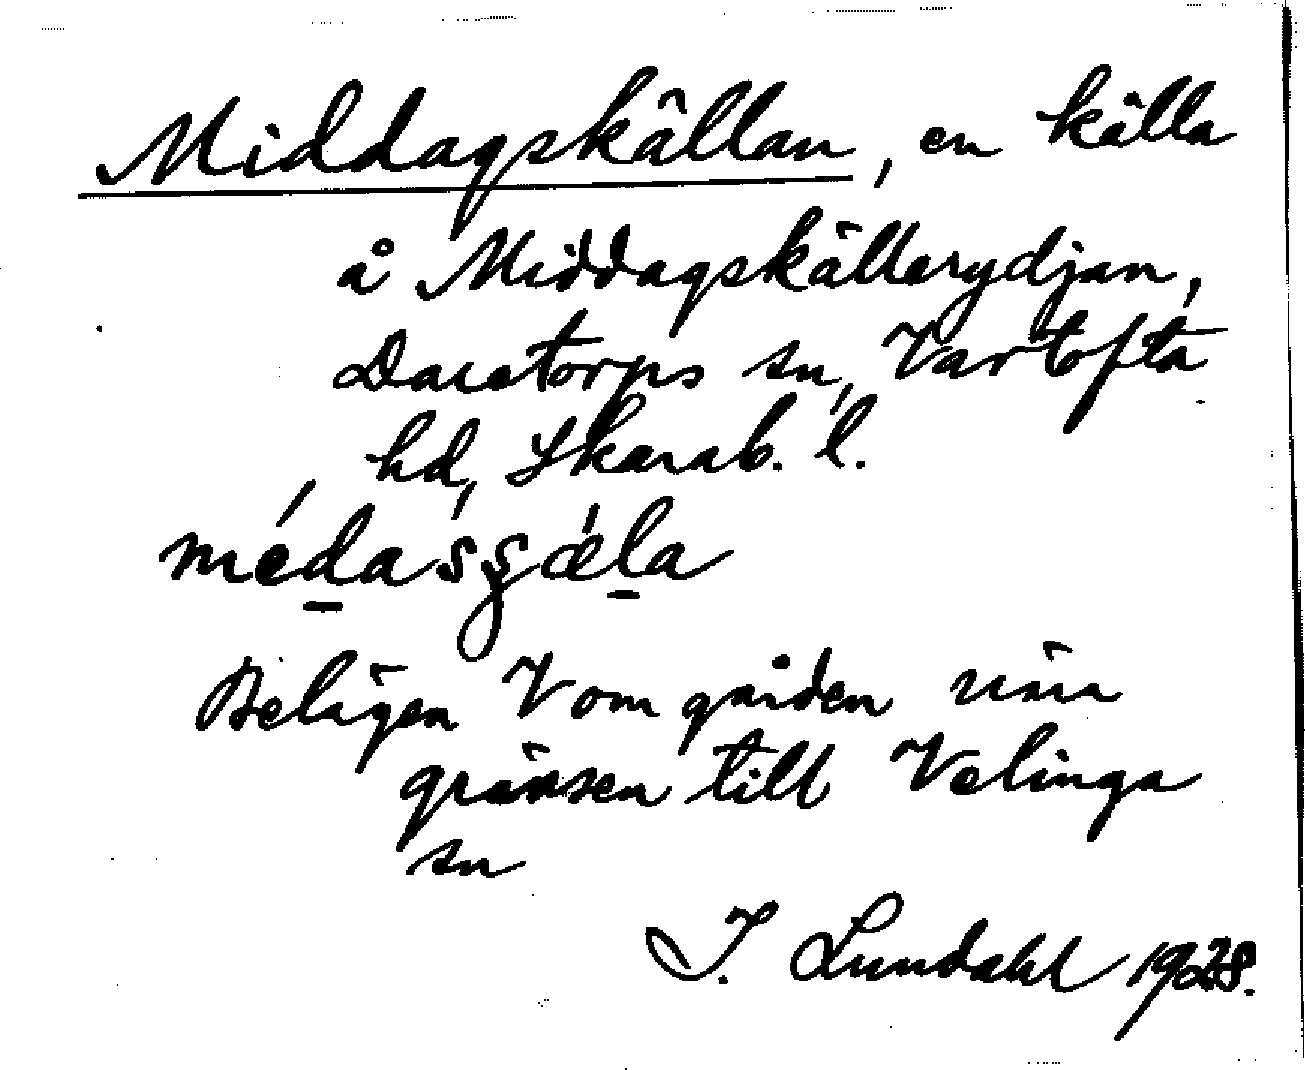 Middagskällan, en källa
å Middagskällerydjan,
Daretorps sn, Vartofta
hd, Skarab. l.
Belägen V om gården nära
gränsen till Velinga
sn
I. Lundahl 1928.